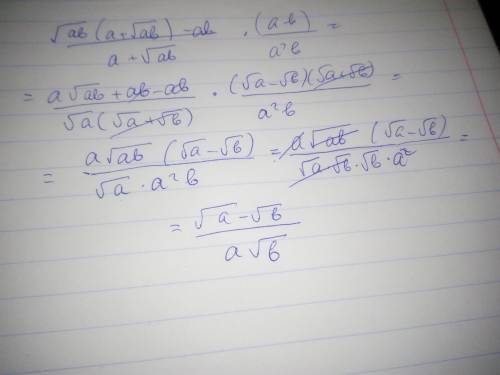 (√ab (a+√ab) − ab)/(a + √ab) · (a−b)/(a²b) =
= (a√ab + ab − ab)/(√a(√a+√b)) · ((√a−√b)(√a+√b))/(a²b) =
= (a√ab (√a−√b))/(√a · a²b) = (a√ab (√a−√b))/(√a·√b·√b·a²) =
= (√a−√b)/(a√b)